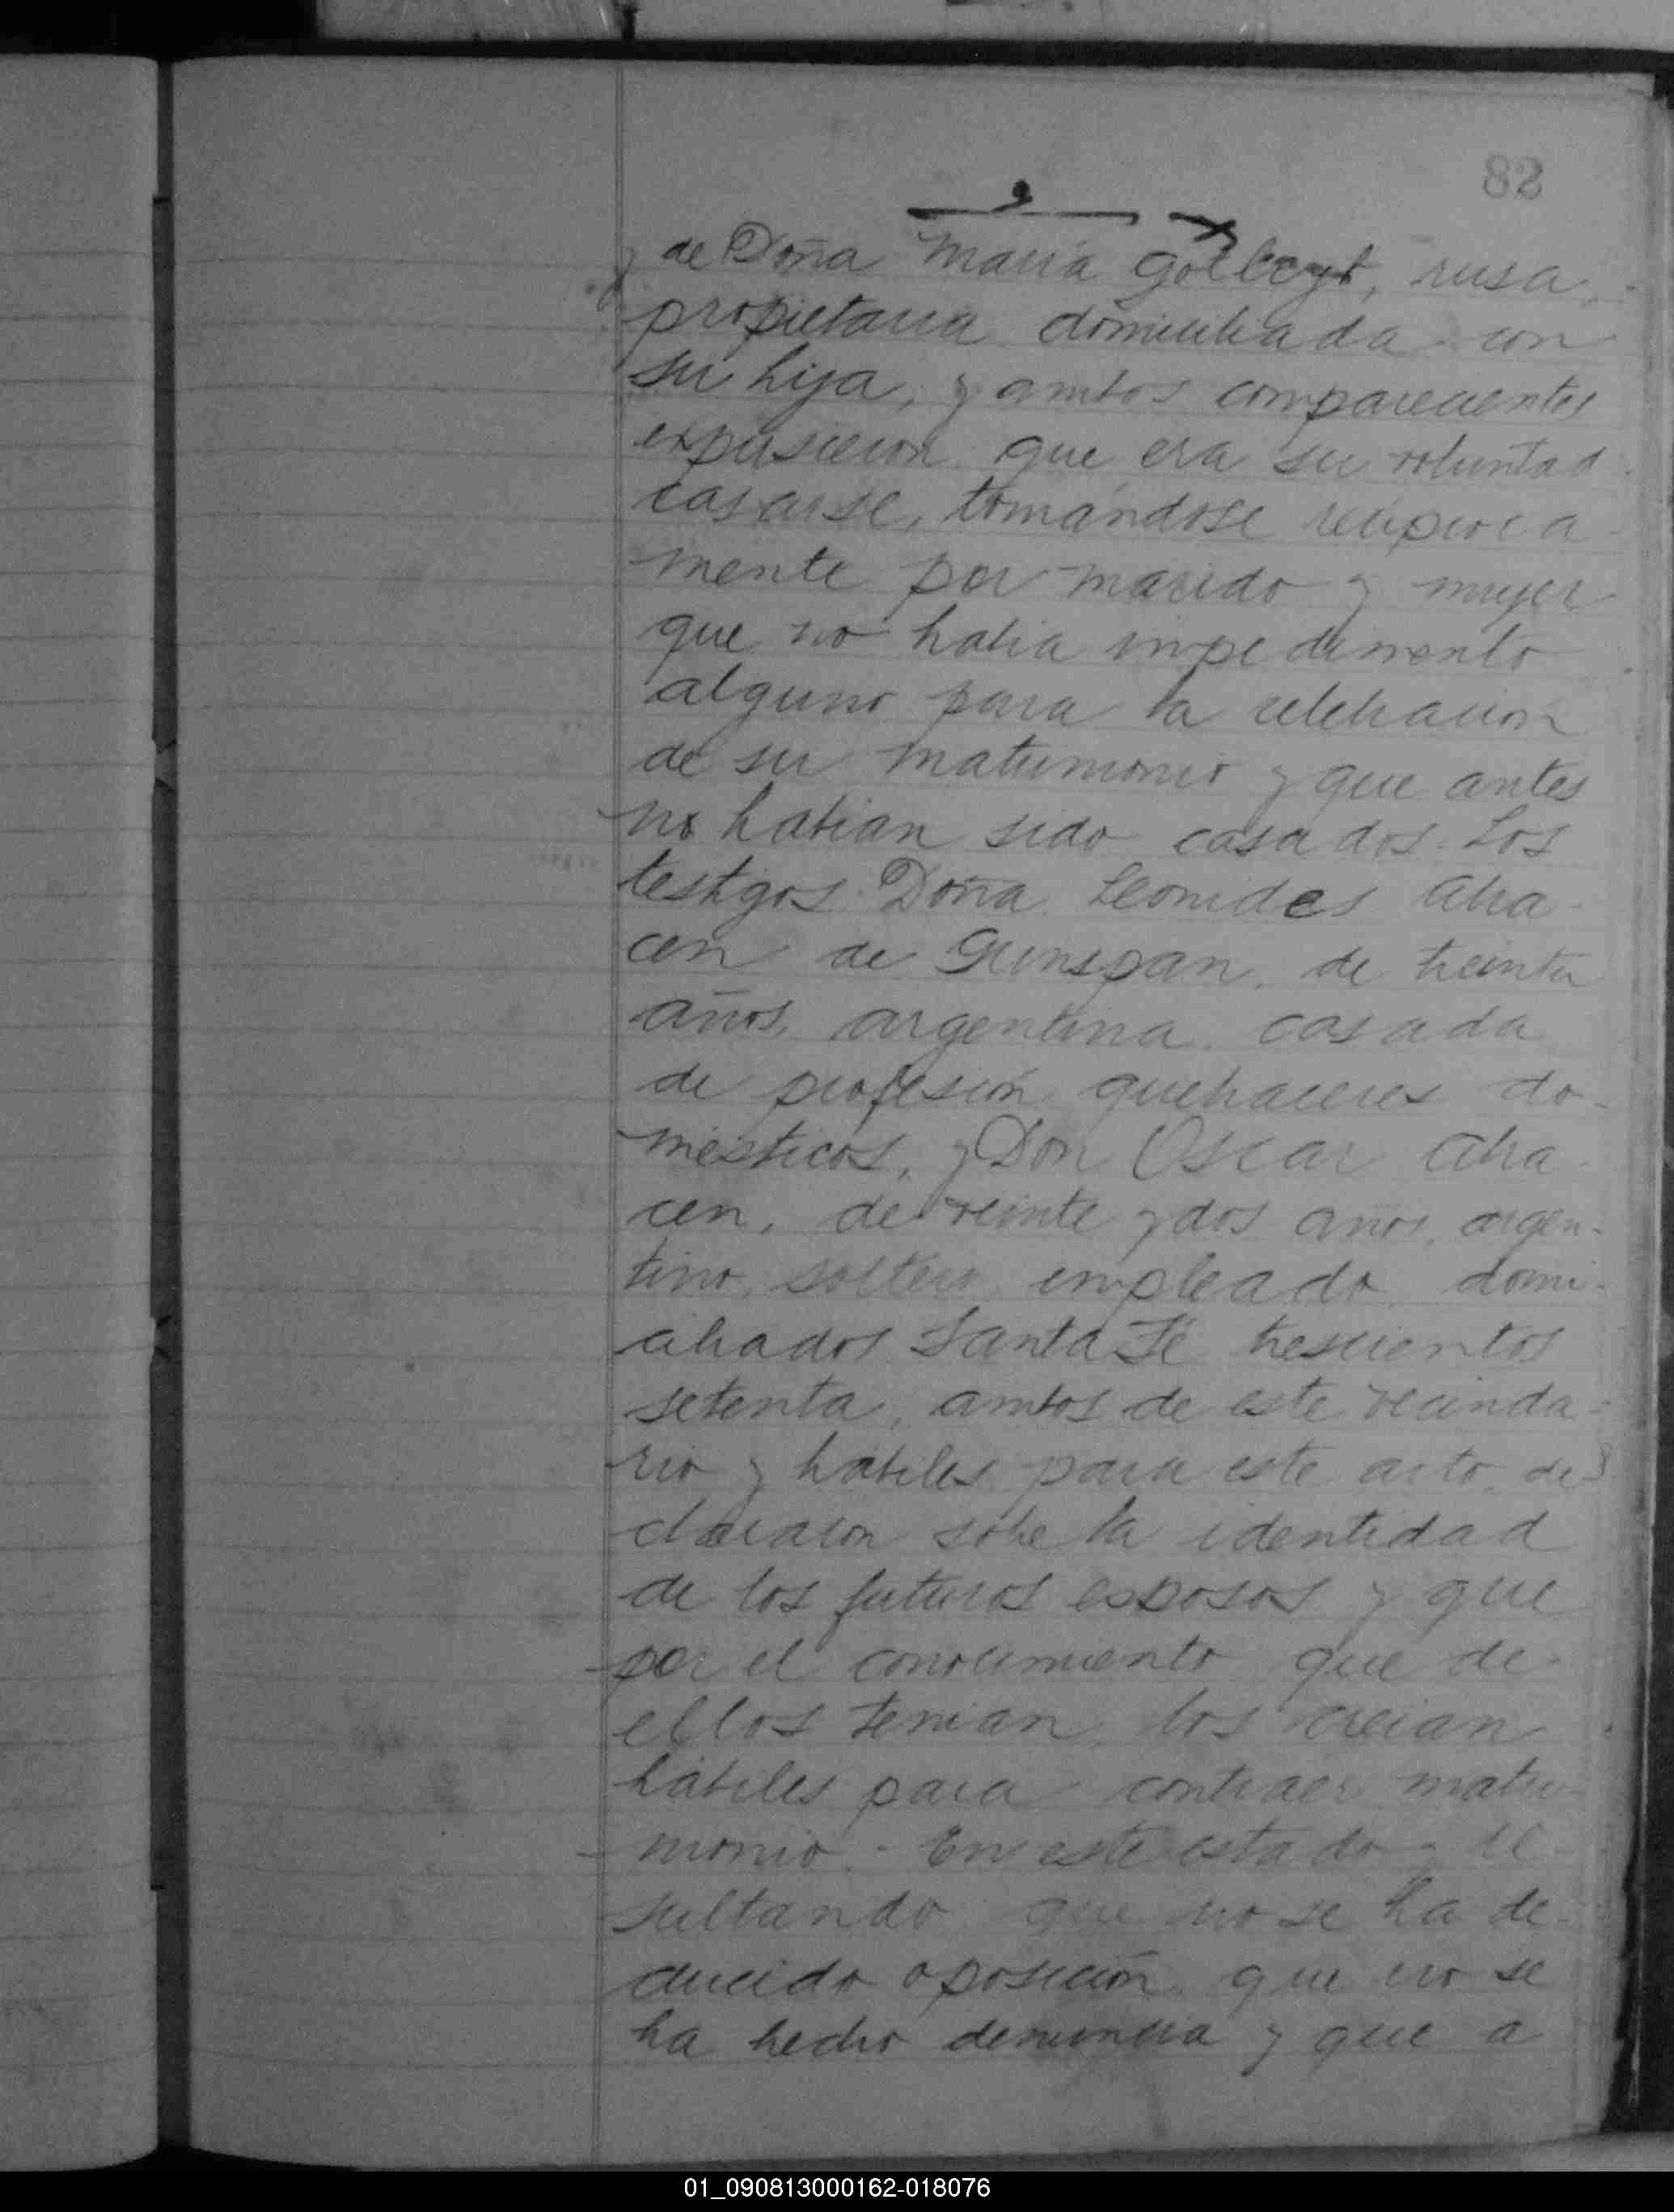 82
y de Doña María Golbcyt, rusa,
propietaria domiciliada con
su hija, y ambos comparecientes
expusieron que era su voluntad
casarse, tomándose recíproca-
mente por marido y mujer
que no habia impedimento
alguno para la celebracion
de su matrimonio y que antes
no habian sido casados. Los
testigos Doña Leonides Abra-
cen de Grinspan, de treinta
años, argentina, casada
de profesión quehaceres do-
mésticos, y Don Oscar Abra-
cen, de veinte y dos años, argen-
tino, soltero empleado domi-
ciliados Santa Fé trescientos
setenta, ambos de este vecinda-
rio y hábiles para este acto, de-
clararon sobre la identidad
de los futuros esposos y que
por el conocimiento que de
ellos tenian, los creian
hábiles para contraer matri-
monio.- En este estado y re-
sultando que no se ha de-
ducido oposición, que no se
ha hecho denuncia y que a
01_090813000162-018076